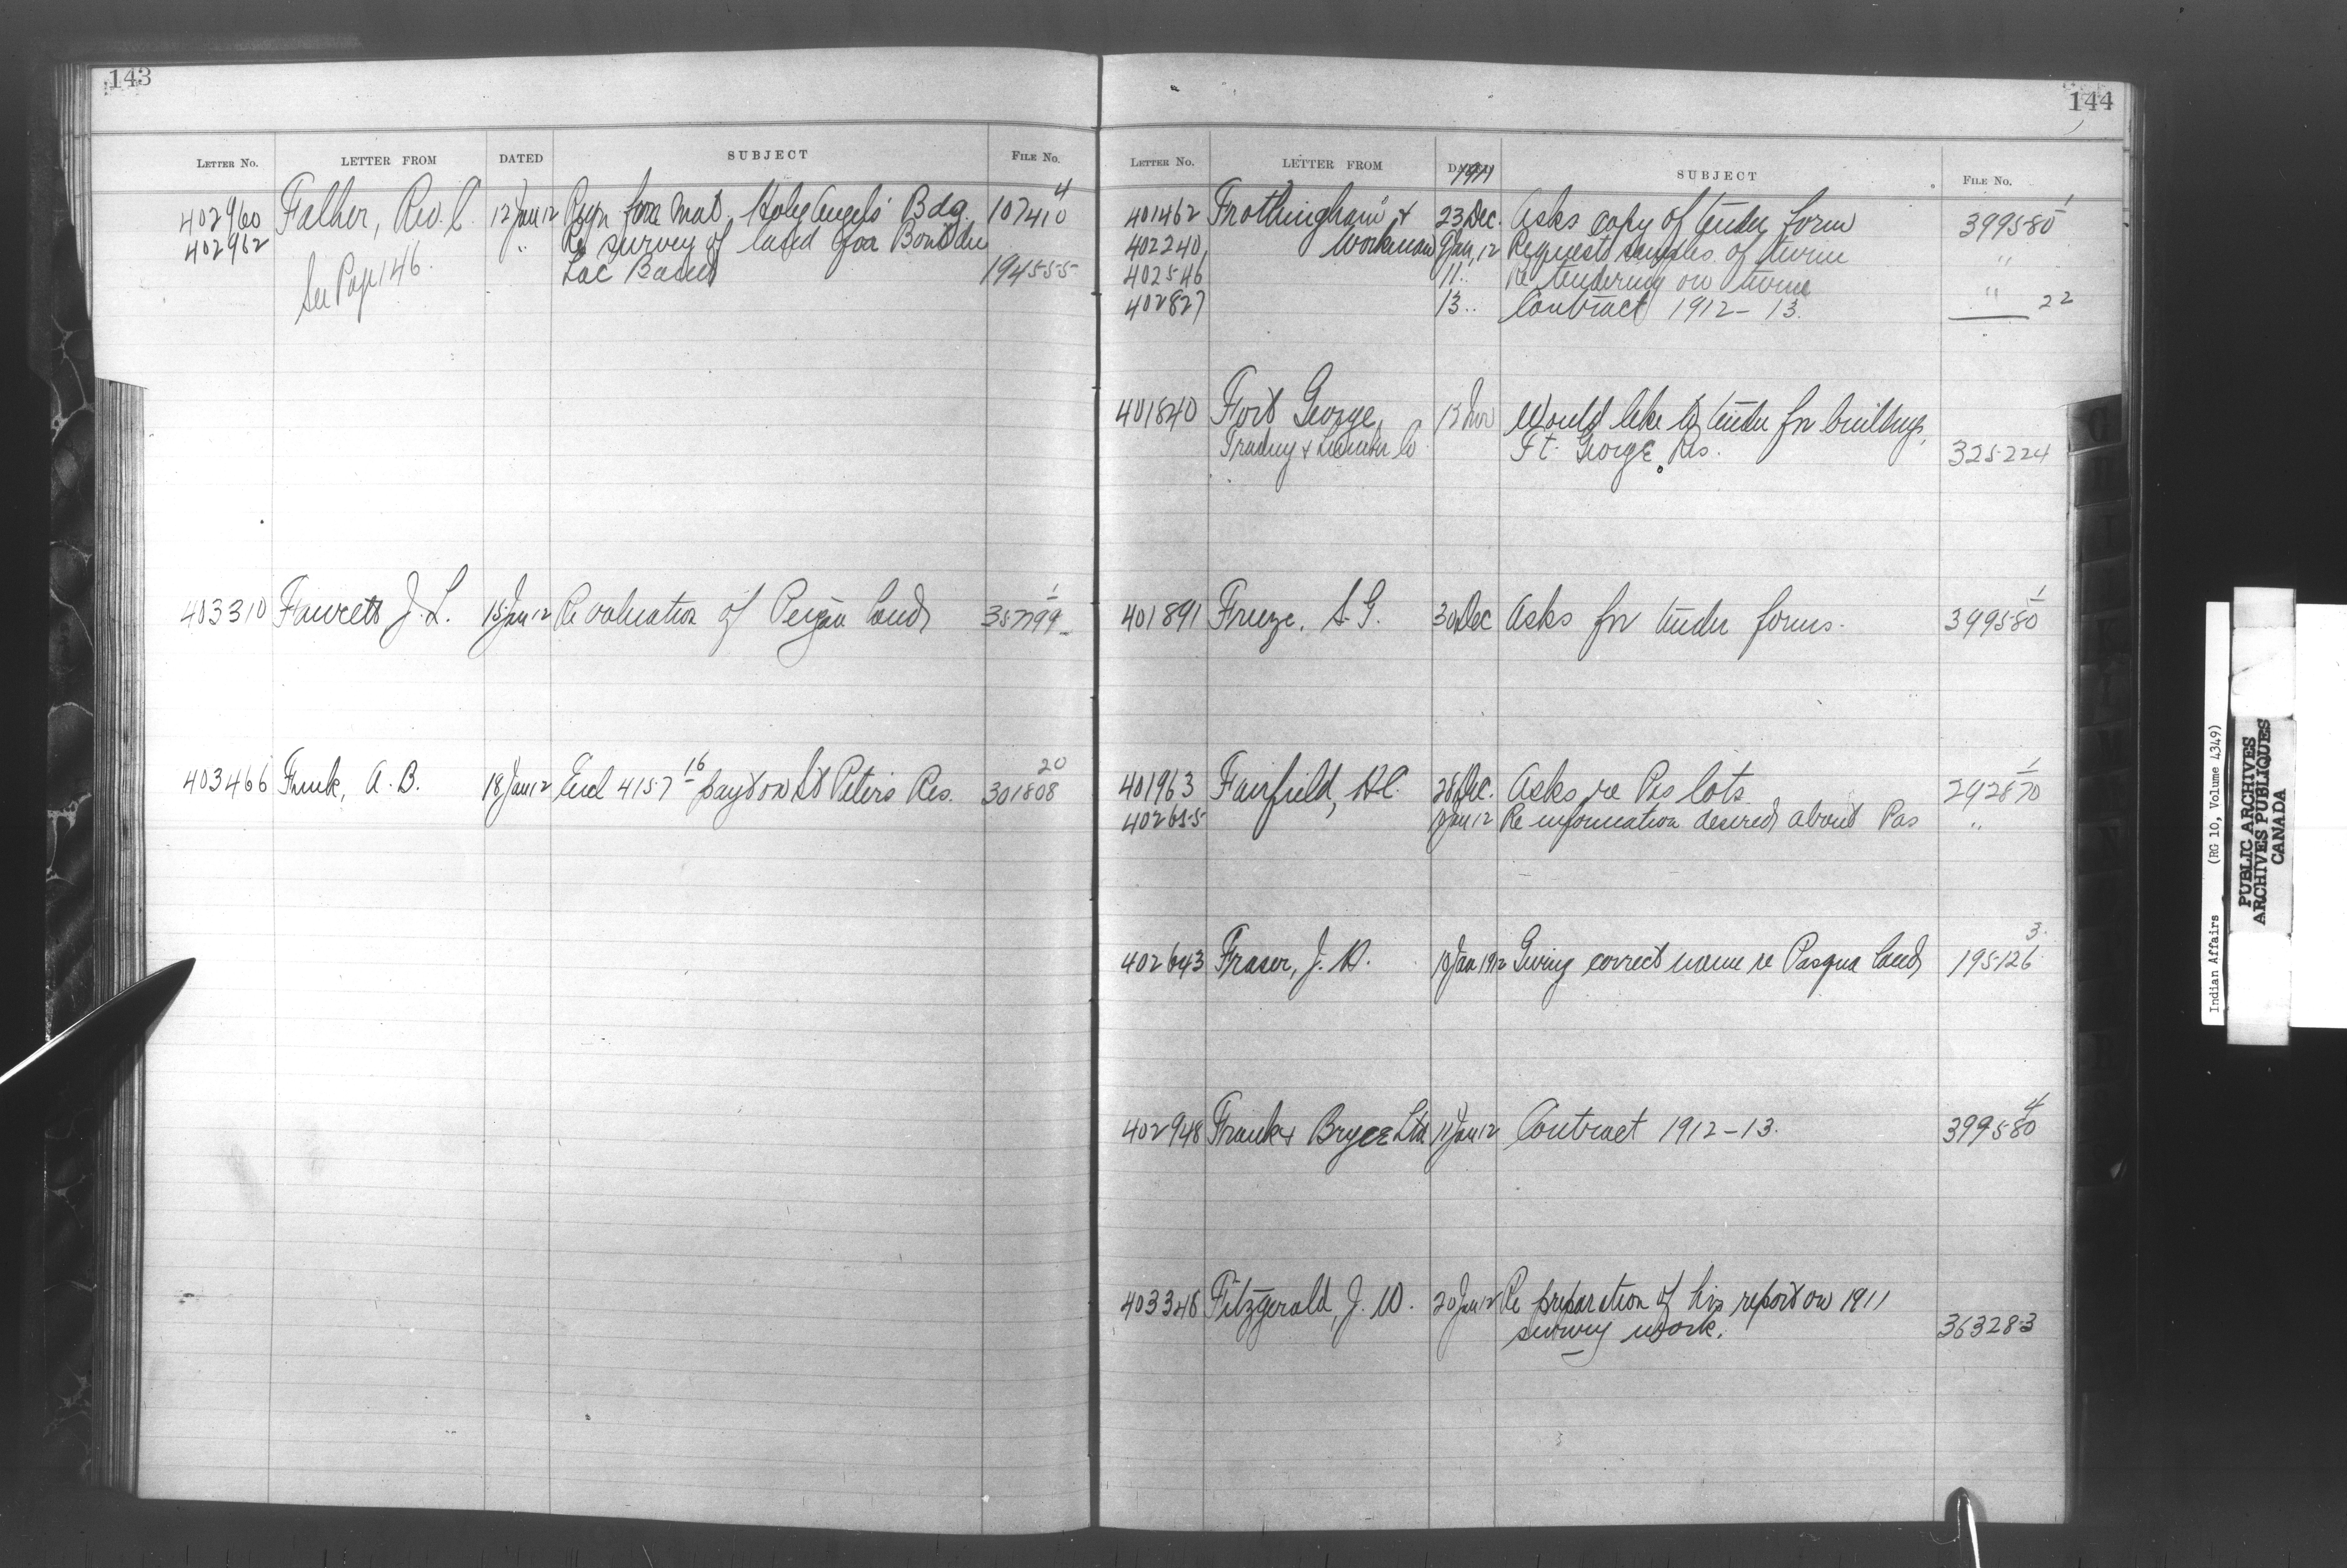 143
LETTER No. LETTER FROM DATED SUBJECT FILE No.
402960 Falher, Rev. C. 12 Jan 12 Reqn for mat. Holy Angels' Bdg. 107410 4
402962 " Re survey of land for Bon du
Lac Band 194555
See Page 146.
403310 Fawcett J. L. 15 Jan 12 Re valuation of Peigan land 357799 1
403466 Frank, A. B. 18 Jan 12 Encl 4157 16 payt on St Peters Res. 301808 20
144
LETTER No. LETTER FROM DATED 1911 SUBJECT FILE No.
401462 Frothingham & 23 Dec. Asks copy of tender form 399580 1
402240 Workman 9 Jan, 12 Requests samples of twine "
402546 11 " Re tendering on twine "
402827 13 " Contract 1912-13. 22
401840 Fort George Would like to tender for buildings,
Trading & Lumber Co. Ft. George Res. 325224
401891 Freeze, S. G. 30 Dec Asks for tender forms. 399580 1
401963 Fairfield, 28 Dec. Asks re Pas lots 292870 1
402655 Jan 12 Re information desired about Pas "
402643 Fraser, J. D. 10 Jan 1912 Giving correct name re Pasqua land 195126 3
402948 Frank & Bryce Ltd 11 Jan 12 Contract 1912-13. 399580 4
403348 Fitzgerald, J. W. 20 Jan 12 Re preparation of his report on 1911
survey work. 363283
Indian Affairs (RG 10, Volume 4349)
PUBLIC ARCHIVES
ARCHIVES PUBLIQUES
CANADA